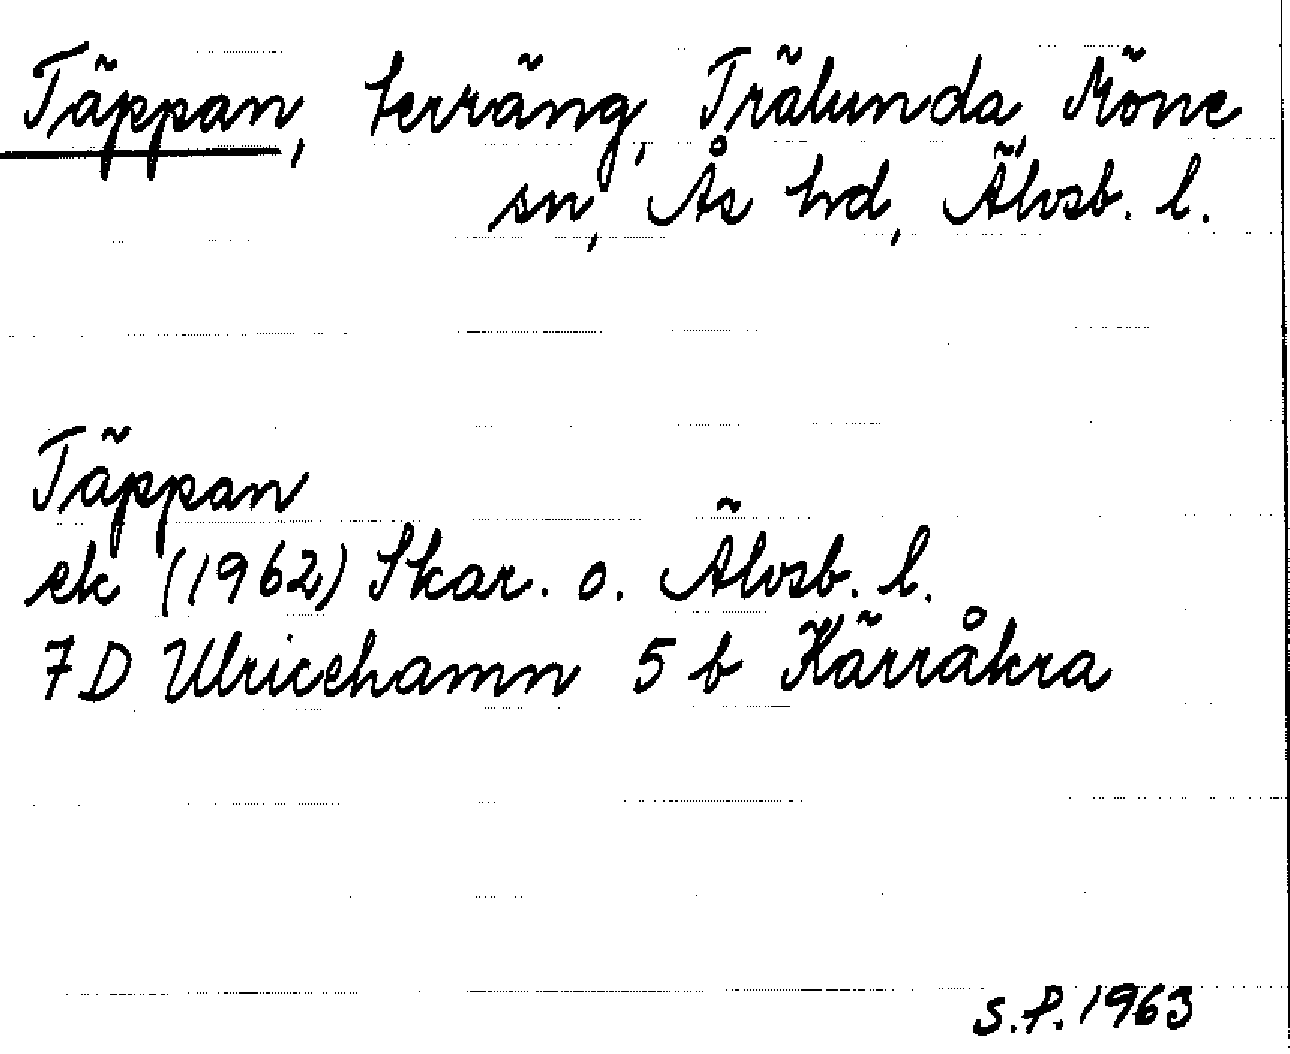 Täppan, terräng, Trälunda, Möne
sn, Ås hd, Älvsb. l.
Täppan
ek (1962) Skar. o. Älvsb. l.
7D Ulricehamn 5 b Kärråkra
S.P. 1963